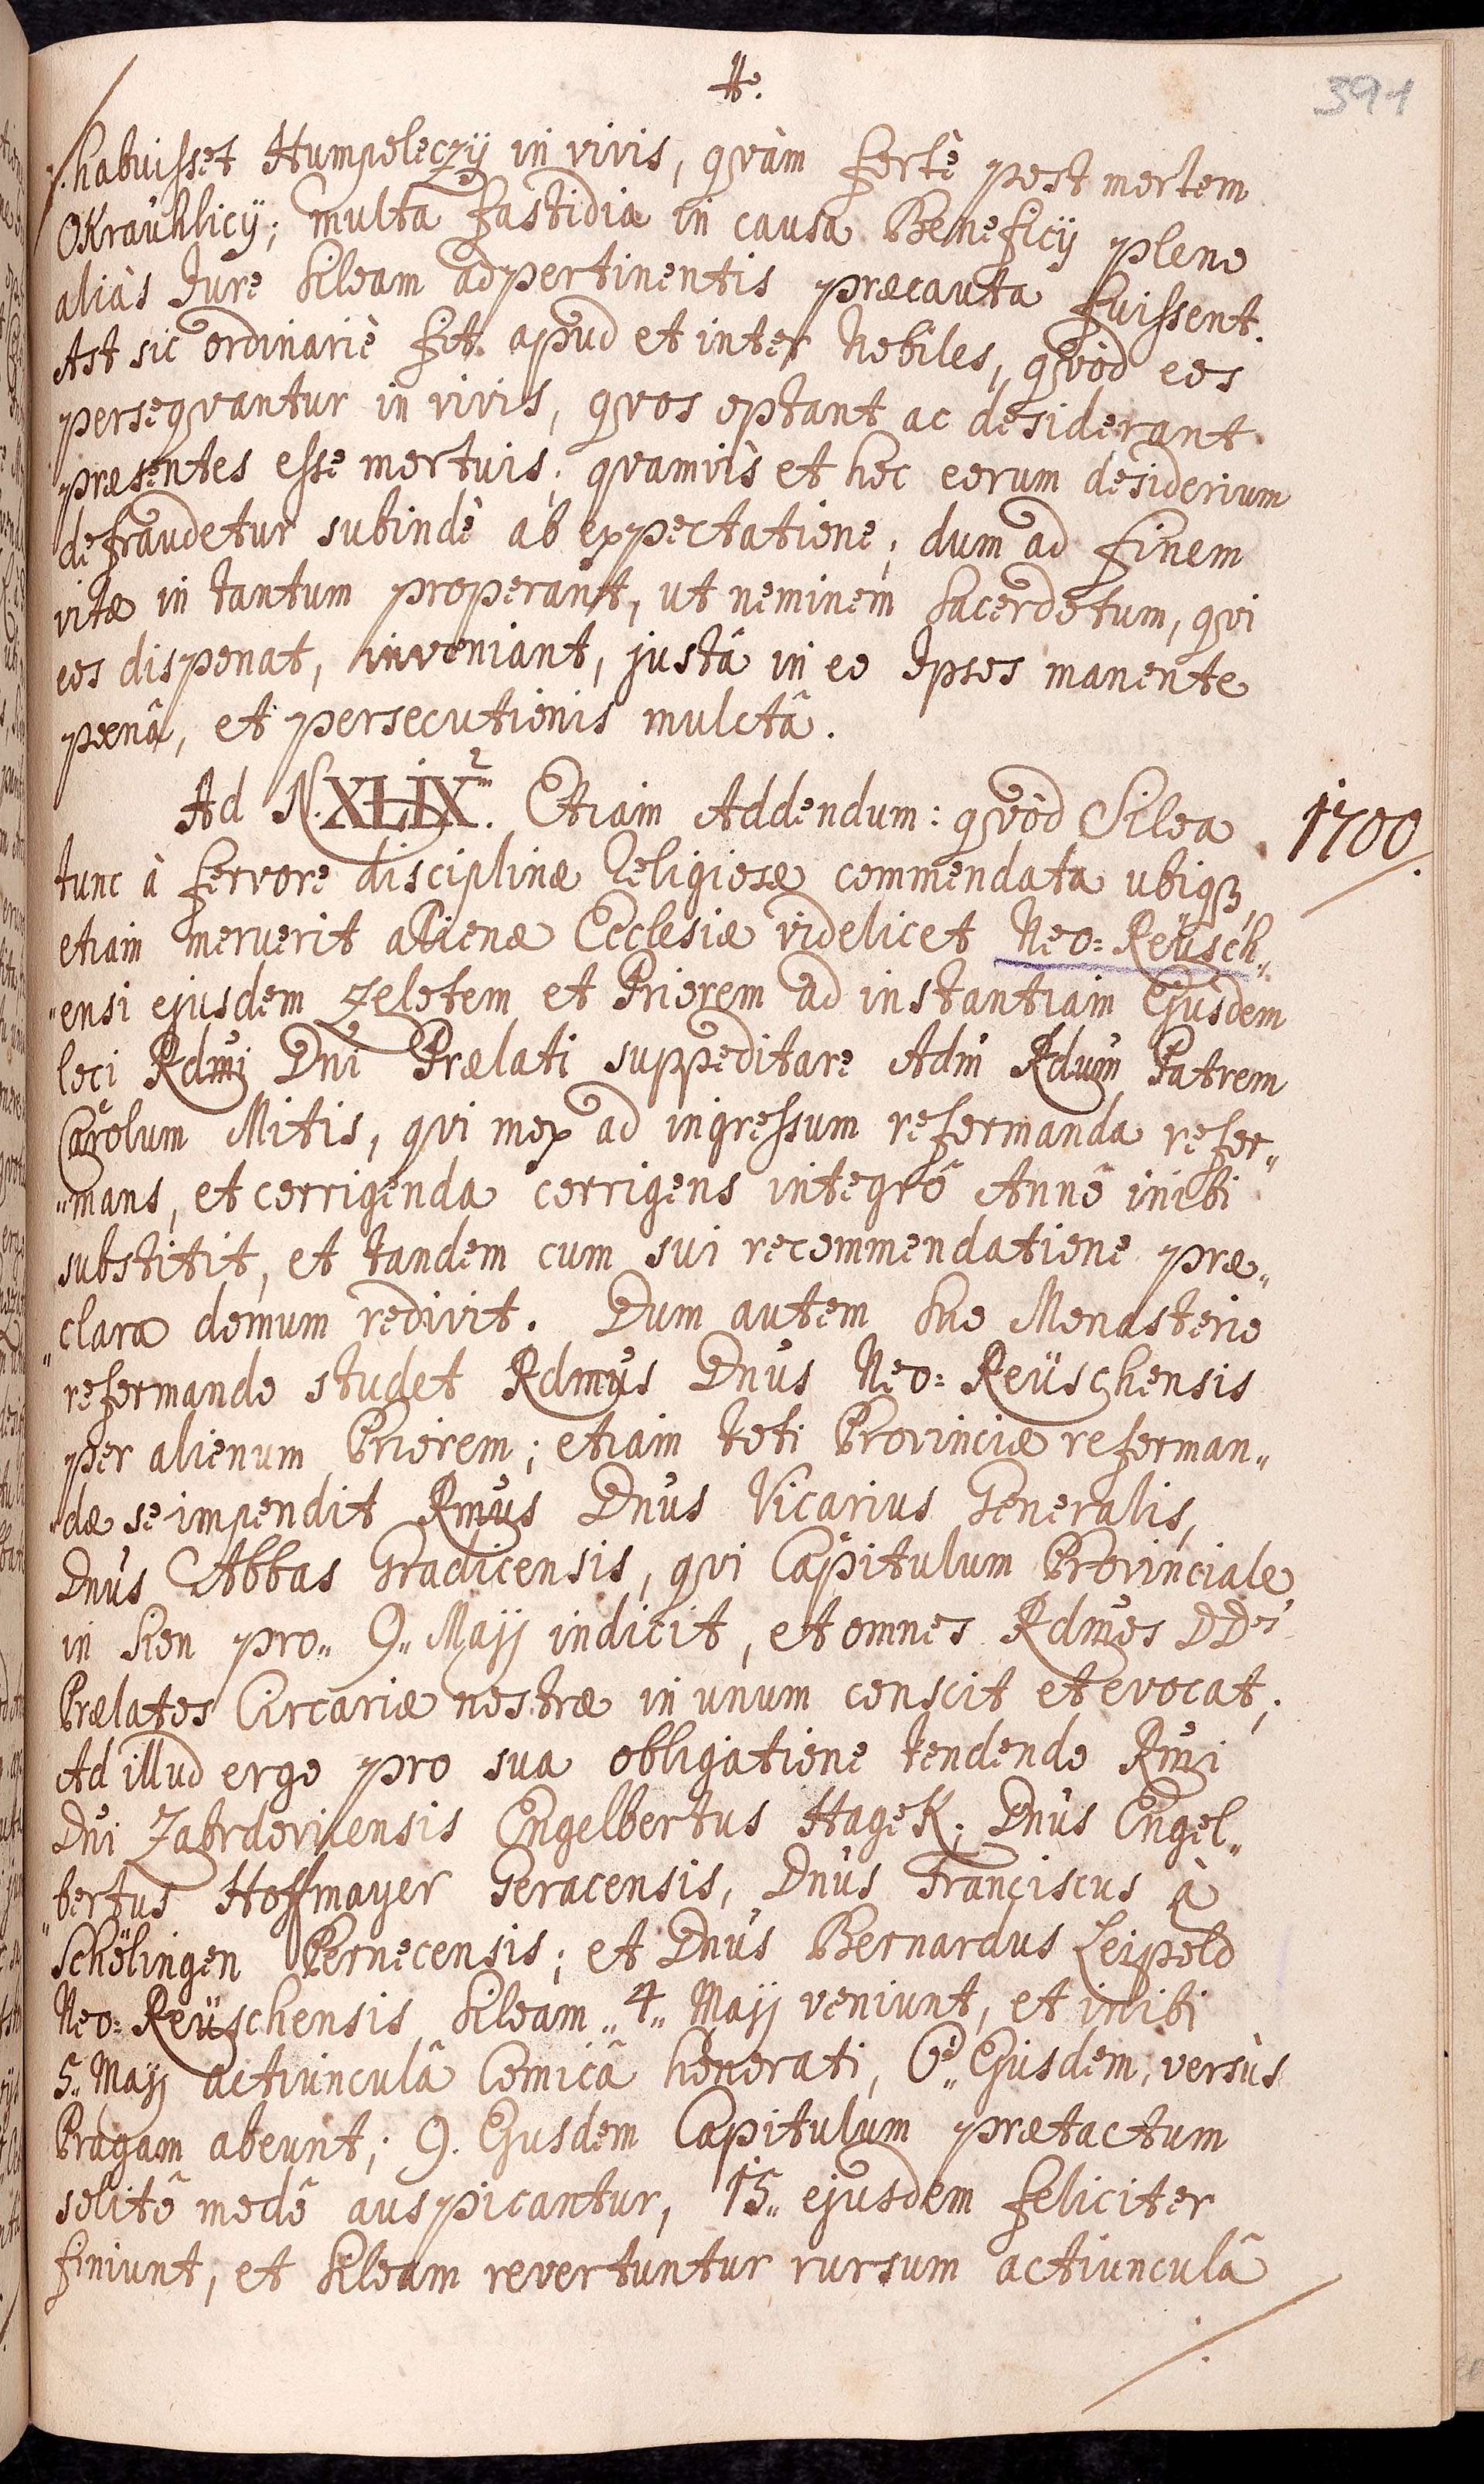 391
habuisset Humpoleczÿ in vivis, qvàm fortè post mortem
OKrauhlicÿ; multa fastidia in causa Beneficÿ pleno
aliàs Jure Siloam adpertinentis præcauta fuissent.
Ast sic ordinariè fit apud et inter Nobiles, qvòd eos
perseqvantur in vivis, qvos optant ac desiderant
præsentes esse mortuis; qvamvìs et hoc eorum desiderium
defraudetur subindè ab expectatione; dum ad finem
vitæ in tantum properant, ut neminem Sacerdotum, qvi
eos disponat, inveniant, justâ in eo Ipsos manente
poenâ, et persecutionis mulctâ.
Ad N. XLIX. Etiam Addendum: qvòd Siloa
1700
tunc à fervore disciplinæ Religiosæ commendata ubiqꝫ
etiam meruerit alienæ Ecclesiæ videlicet Neo=Reüsch„
„ensi ejusdem zelotem et Priorem ad instantiam Ejusdem
loci Rdmi Dni Prælati suppeditare Adm Rdum Patrem
Carolum Mitis, qvi mox ad ingressum reformanda refor„
„mans, et corrigenda corrigens integrô Annô inibi
substitit, et tandem cum sui recommendatione præ„
„clara domum redivit. Dum autem Suo Monasterio
reformando studet Rdmus Dnus Neo=Reüschensis
per alienum Priorem; etiam toti Provinciæ reforman„
„dæ se impendit Rmus Dnus Vicarius Generalis,
Dnus Abbas Gradicensis, qvi Capitulum Provinciale
in Sion pro„ 9„ Maÿ indicit, et omnes Rdmos DDos
Prælatos Circariæ nostræ in unum conscit et evocat;
Ad illud ergo pro sua obligatione tendendo Rmi
Dni Zabrdovicensis Engelbertus HageK; Dnus Engel„
„bertus Hoffmayer Geracensis, Dnus Franciscus à
Schölingen Pernecensis; et Dnus Bernardus Leipold
Neo=Reüschensis Siloam „4„ Maÿ veniunt, et inibi
5„ Maÿ actiunculâ Comicâ honorati, 6„ Ejusdem, versùs
Pragam abeunt; 9. Ejusdem Capitulum prætactum
solitô modô auspicantur, 15„ ejusdem feliciter
finiunt, et Siloam revertuntur rursum actiunculâ